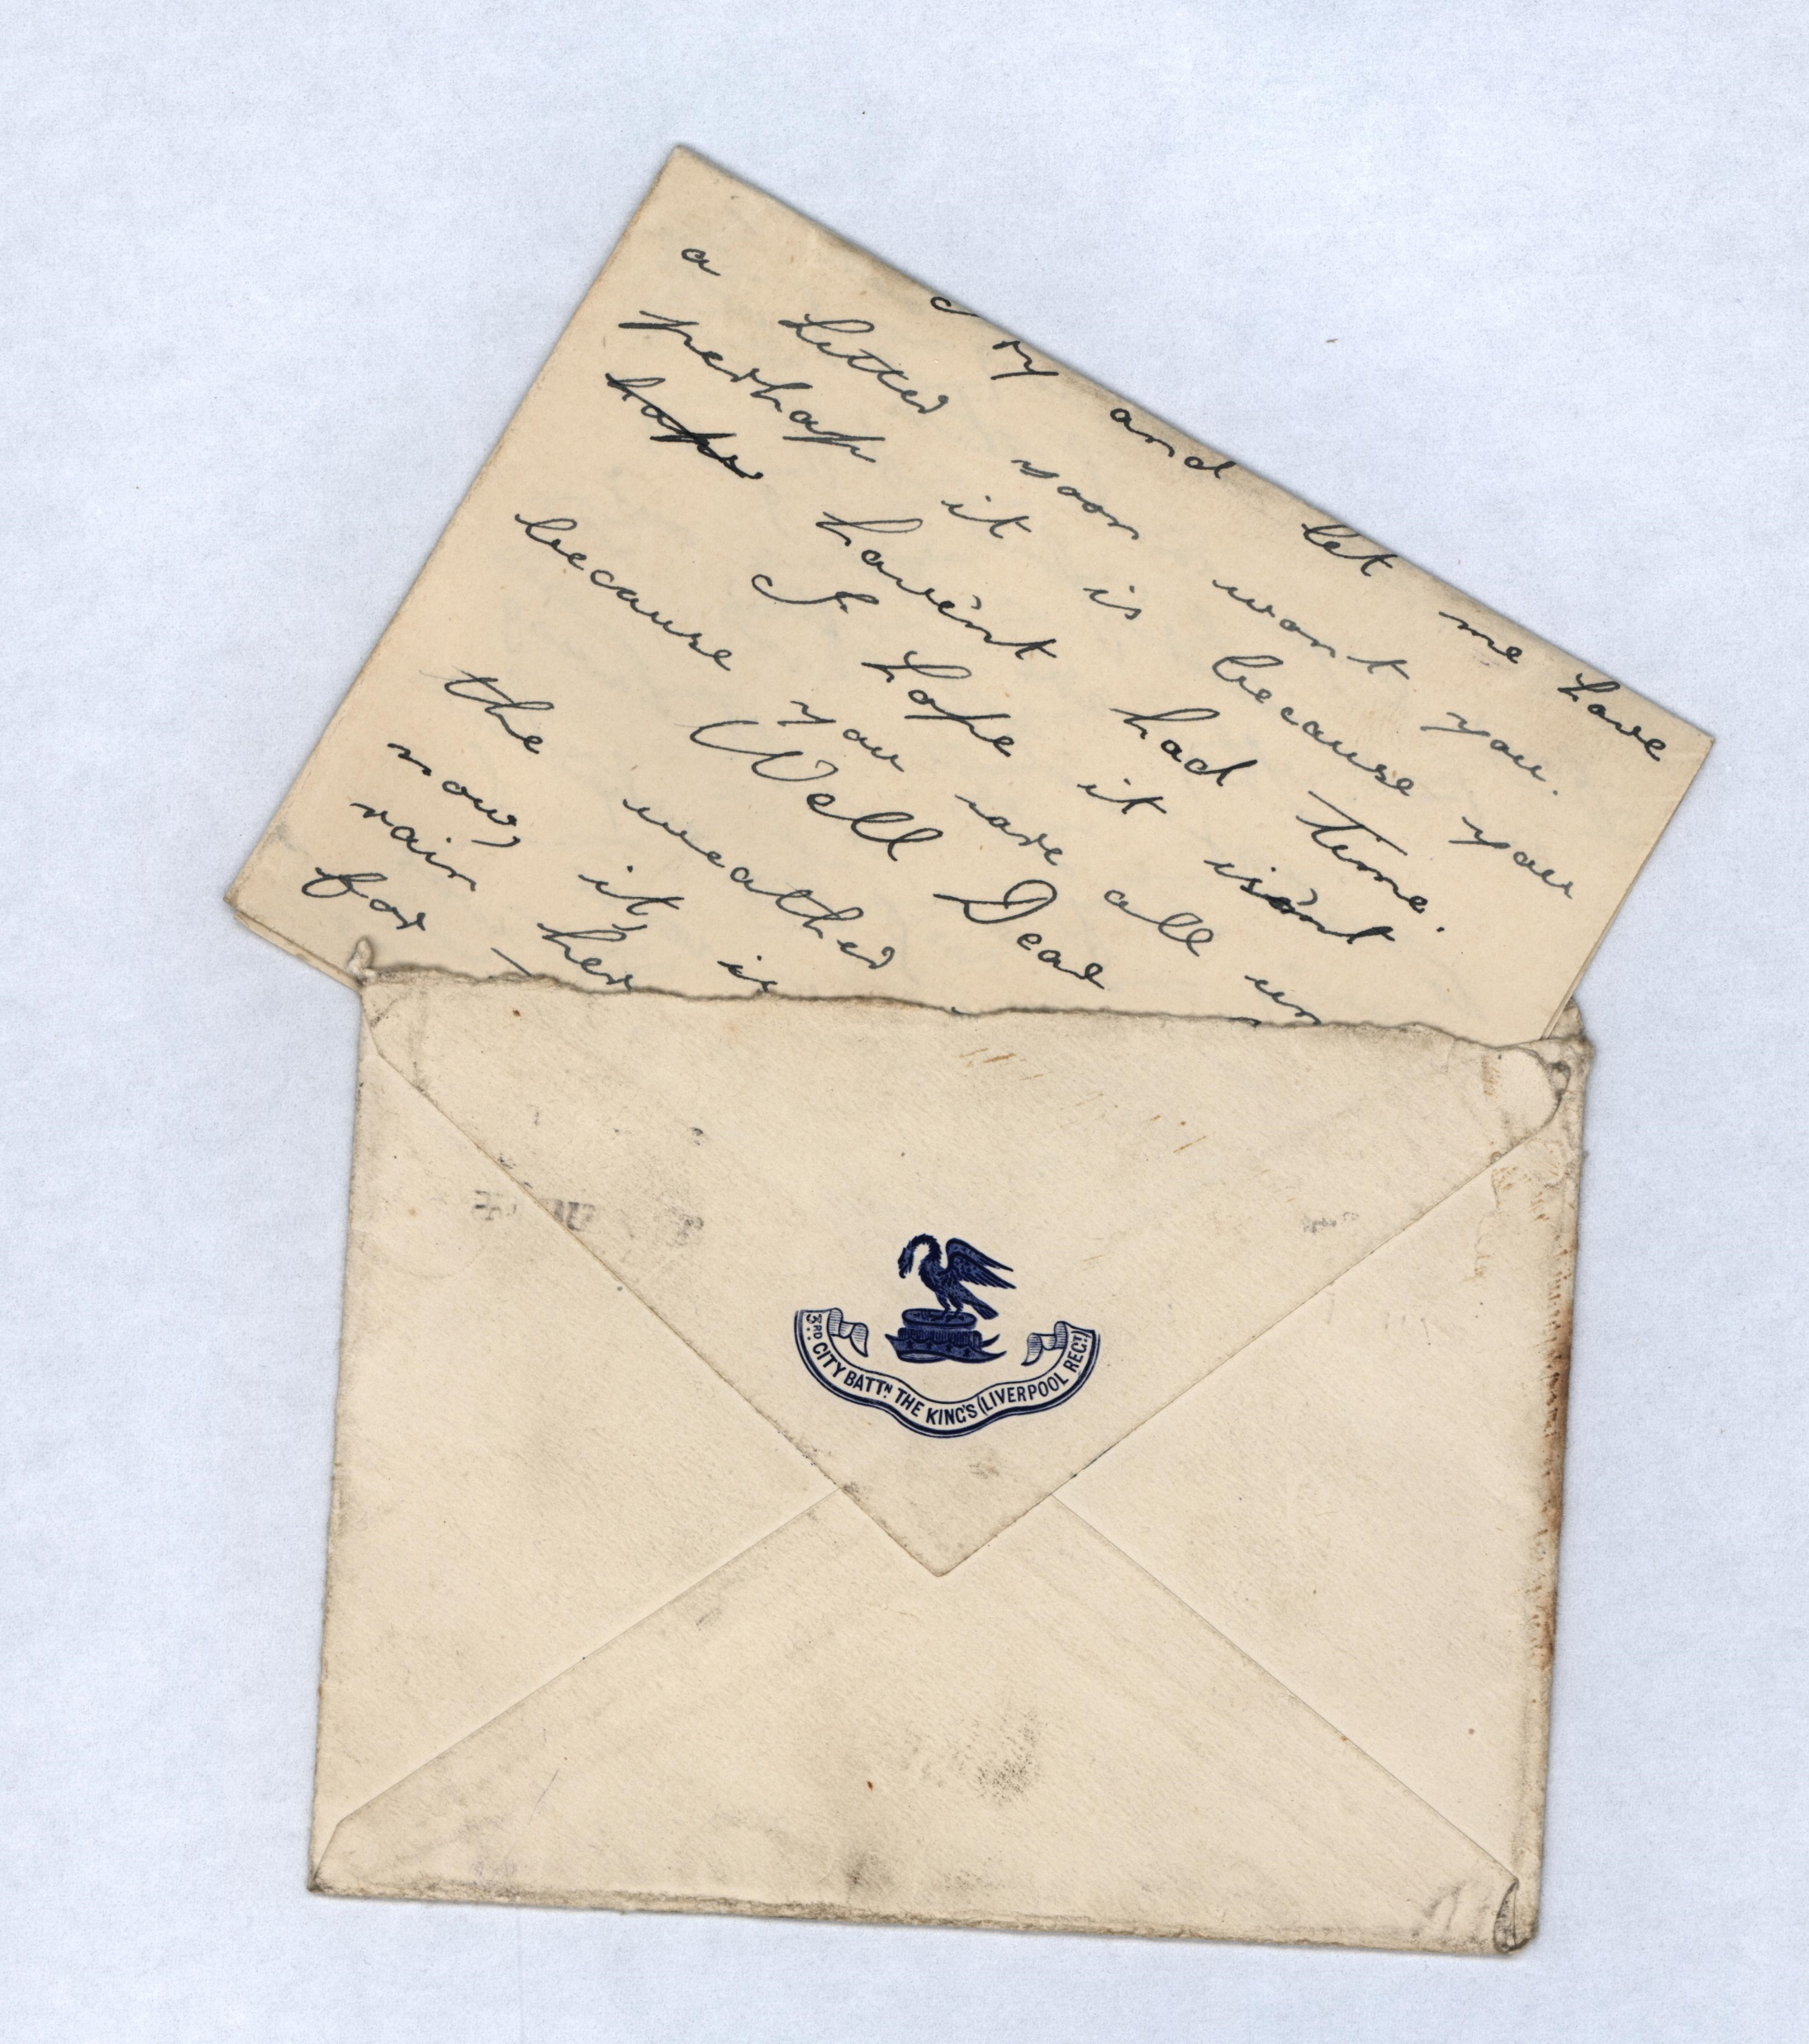 Try and let me have
a letter soon wont you.
perhaps it is because you
hope have'nt had time.
I hope it is'nt
because you are all un
Well Dear
the weather
now, it, is
rain her
for
3RD CITY BATTN. THE KING'S (LIVERPOOL REGT.)